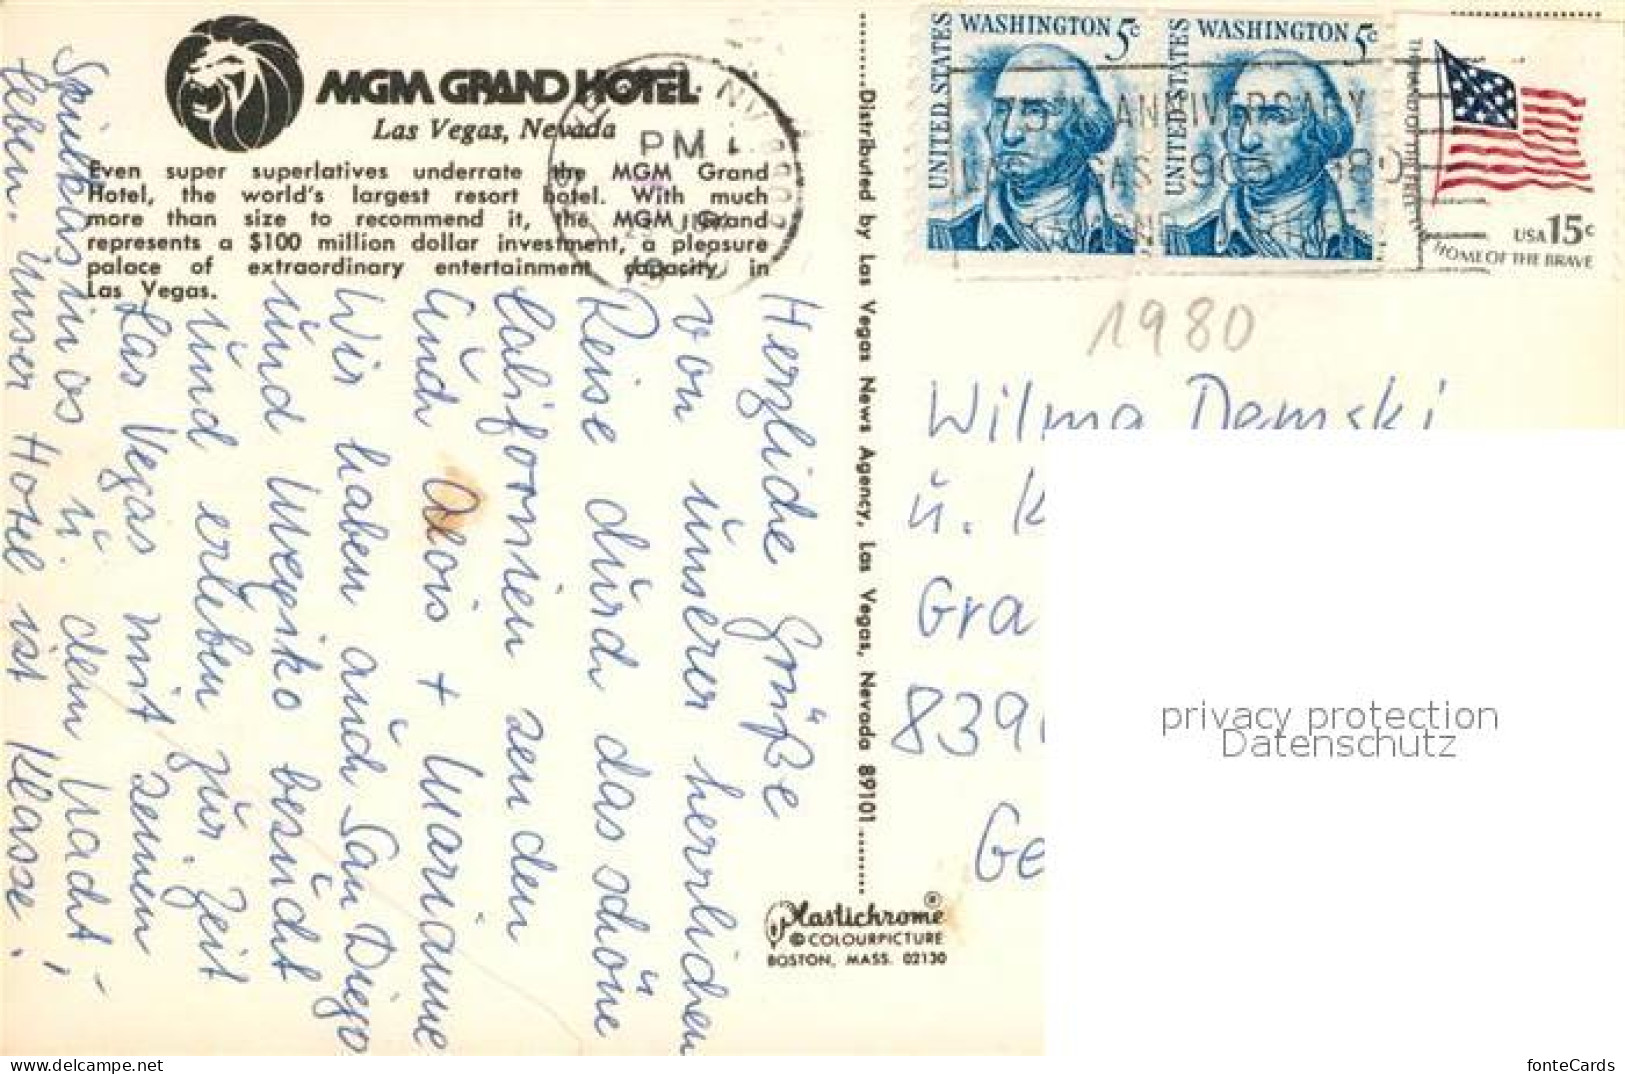 MGM GRAND HOTEL
Las Vegas, Nevada
Even super superlatives underrate the MGM Grand
Hotel, the world's largest resort hotel. With much
more than size to recommend it, the MGM Grand
represents a $100 million dollar investment, a pleasure
palace of extraordinary entertainment capacity in
Las Vegas.
Herzliche Grüße
von unserer herrlichen
Reise durch das schöne
Californien senden
Euch Alois + Marianne
Wir haben auch San Diego
und Mexiko besucht
und erleben zur Zeit
Las Vegas mit seinen
Spielkasinos u. dem Nacht-
leben. Unser Hotel ist Klasse!
Distributed by Las Vegas News Agency, Las Vegas, Nevada 89101
Plastichrome®
© COLOURPICTURE
BOSTON, MASS. 02130
PM
UNITED STATES
WASHINGTON 5c
UNITED STATES
WASHINGTON 5c
THE LAND OF THE FREE
HOME OF THE BRAVE
USA 15c
75TH ANNIVERSARY
LAS VEGAS 1905-1980
1980
Wilma Demski
u. K
Gra
839
Ge
privacy protection
Datenschutz
www.ansichtskartenversand.com
fonteCards